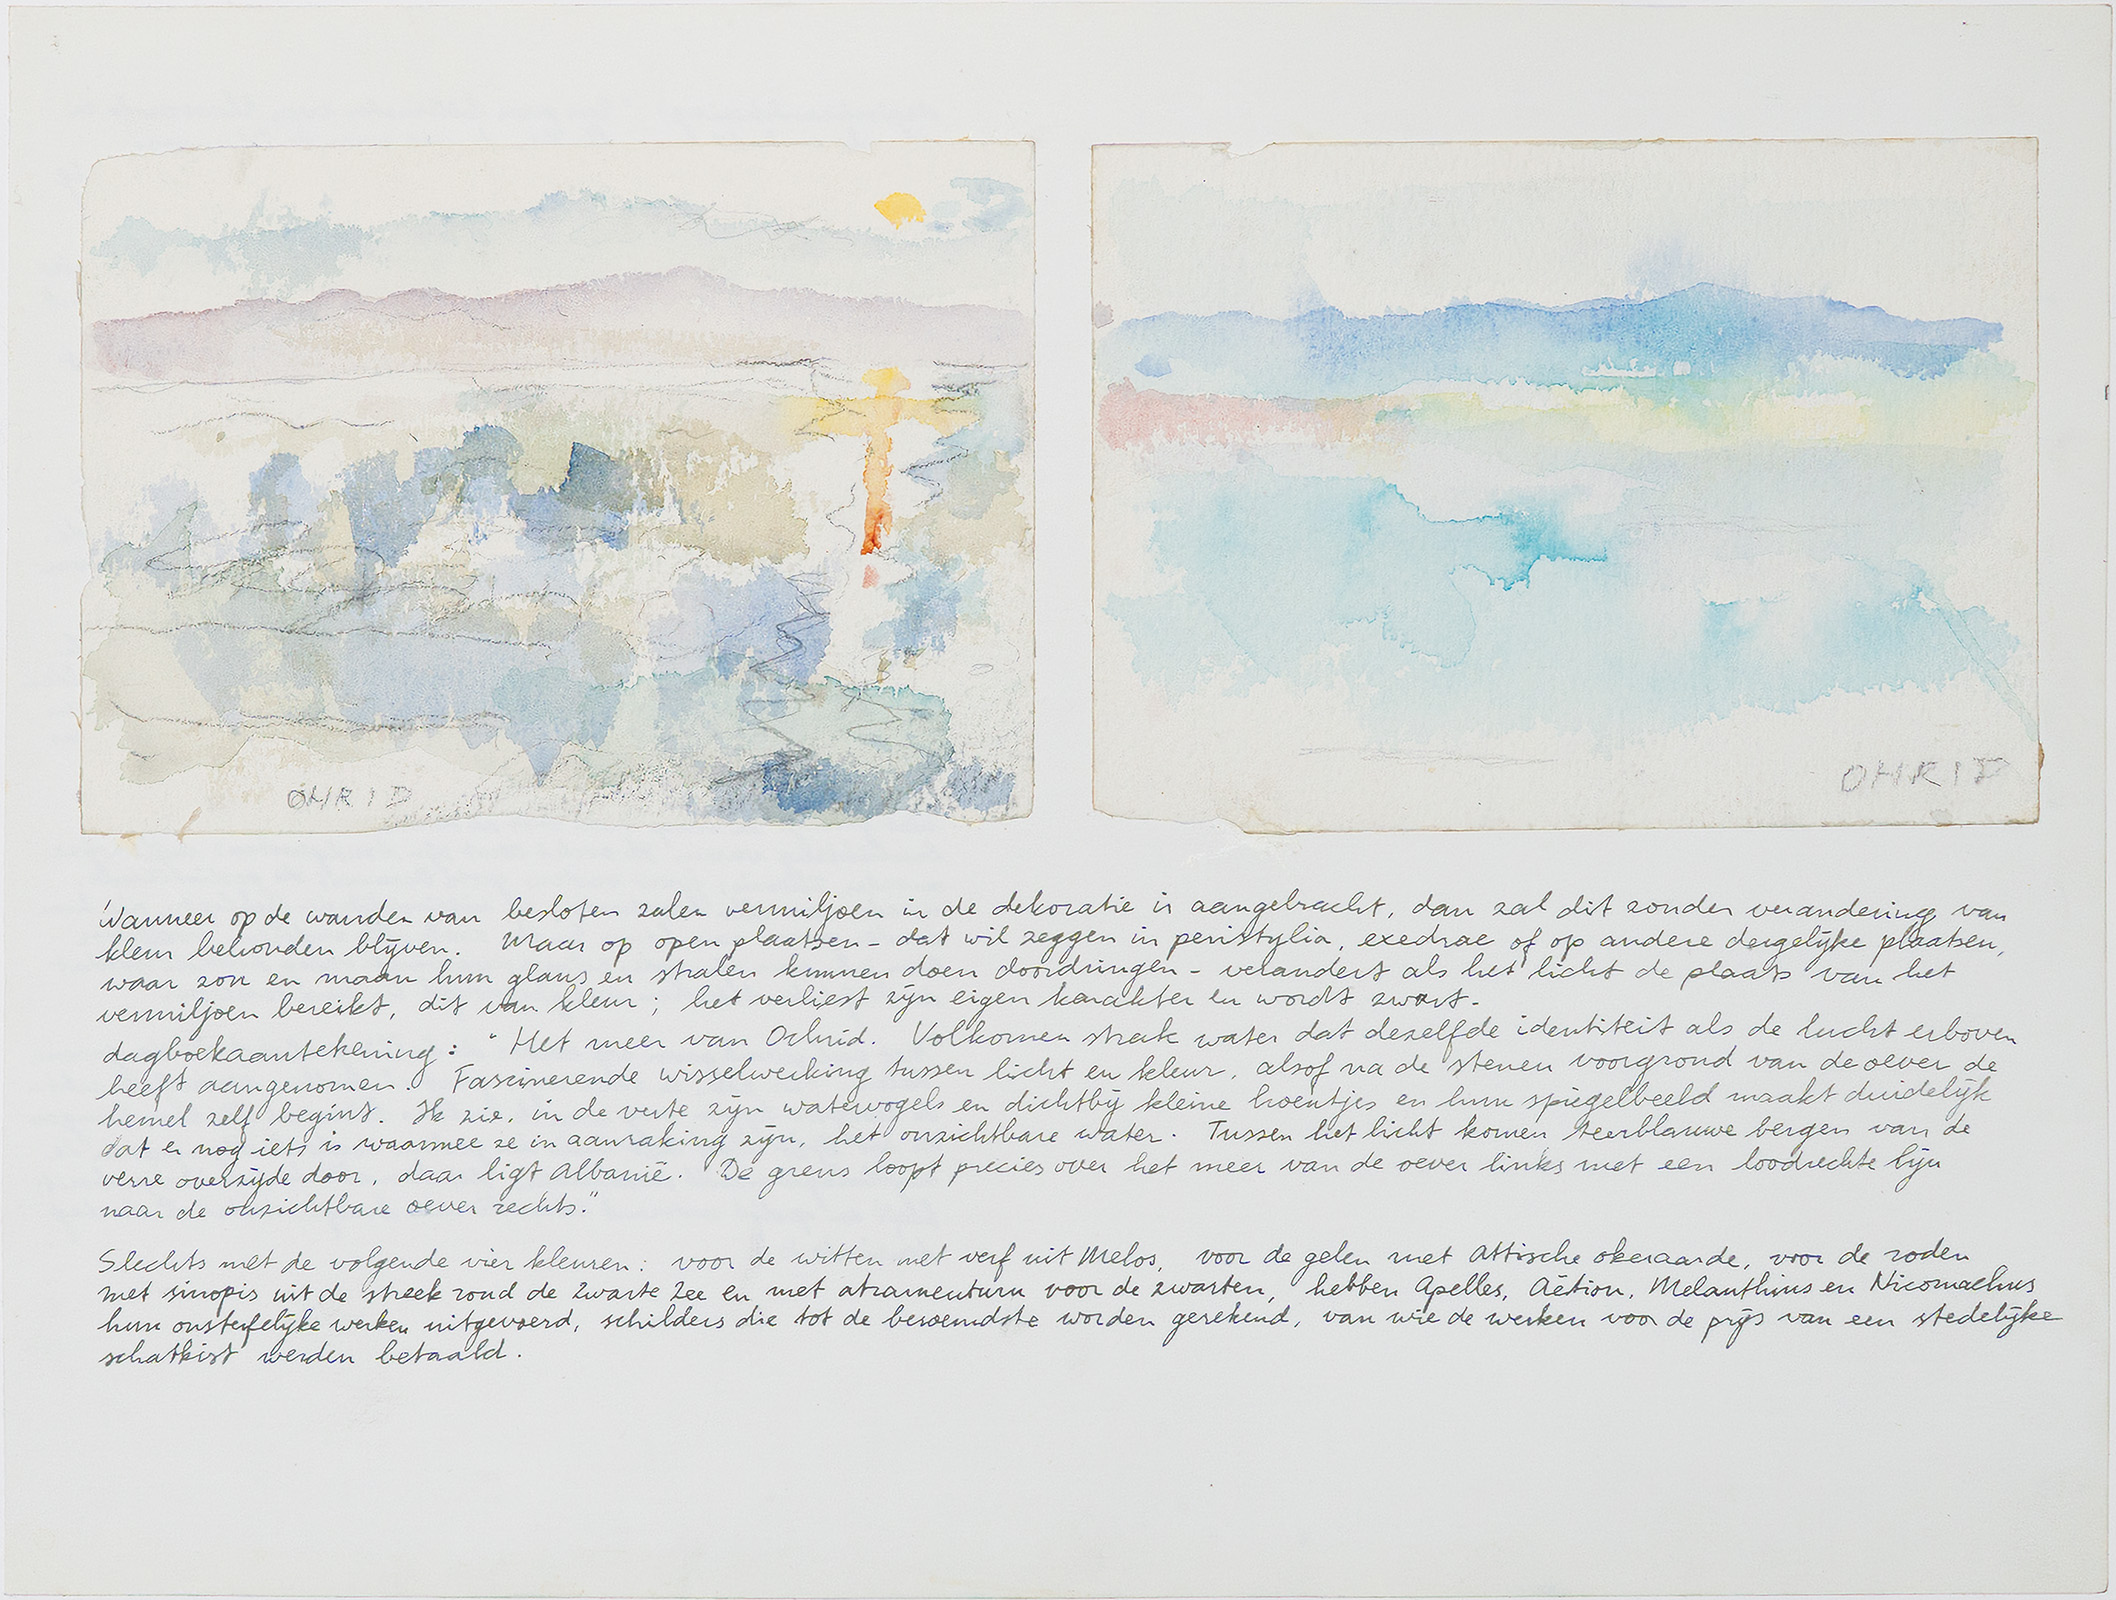 OHRID
OHRID
Wanneer op de wanden van besloten zalen vermiljoen in de dekoratie is aangebracht, dan zal dit zonder verandering van
kleur behouden blijven. Maar op open plaatsen - dat wil zeggen in peristylia, exedrae of op andere dergelijke plaatsen,
waar zon en maan hun glans en stralen kunnen doen doordringen - verandert als het licht de plaats van het
vermiljoen bereikt, dit van kleur; het verliest zijn eigen karakter en wordt zwart.
dagboekaantekening: "Het meer van Ochrid. Volkomen strak water dat dezelfde identiteit als de lucht erboven
heeft aangenomen. Fascinerende wisselwerking tussen licht en kleur, alsof na de stenen voorgrond van de oever de
hemel zelf begint. Ik zie, in de verte zijn watervogels en dichtbij kleine hoentjes en hun spiegelbeeld maakt duidelijk
dat er nog iets is waarmee ze in aanraking zijn, het onzichtbare water. Tussen het licht komen teerblauwe bergen van de
verre overzijde door, daar ligt Albanië. De grens loopt precies over het meer van de oever links met een loodrechte lijn
naar de onzichtbare oever rechts."
Slechts met de volgende vier kleuren: voor de witten met verf uit Melos, voor de gelen met Attische okeraarde, voor de roden
met sinopis uit de streek rond de Zwarte Zee en met atramentum voor de zwarten, hebben Apelles, Aëtion, Melanthius en Nicomachus
hun onsterfelijke werken uitgevoerd, schilders die tot de beroemdste worden gerekend, van wie de werken voor de prijs van een stedelijke
schatkist werden betaald.